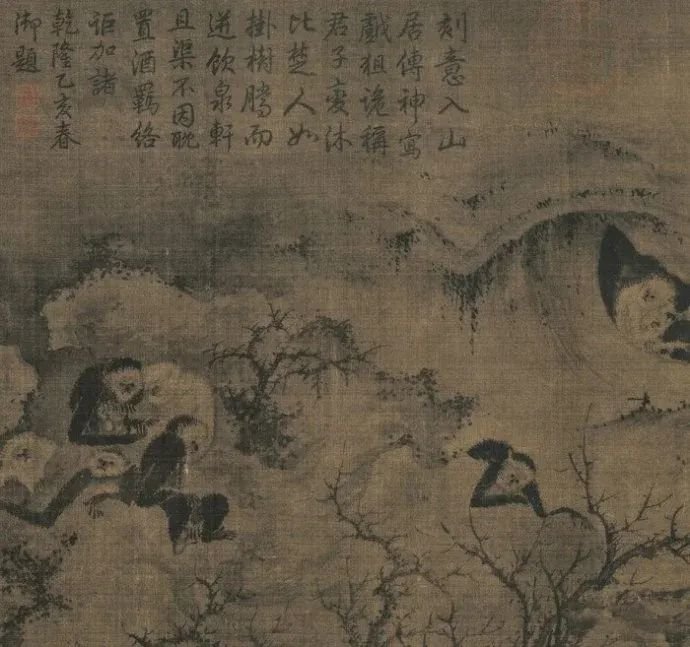 刻意入山
居傳神寫
戲狙詭稱
君子變休
比楚人如
掛樹騰而
迸飲泉軒
且渠不因耽
置酒羈絡
詎加諸
乾隆乙亥春
御題